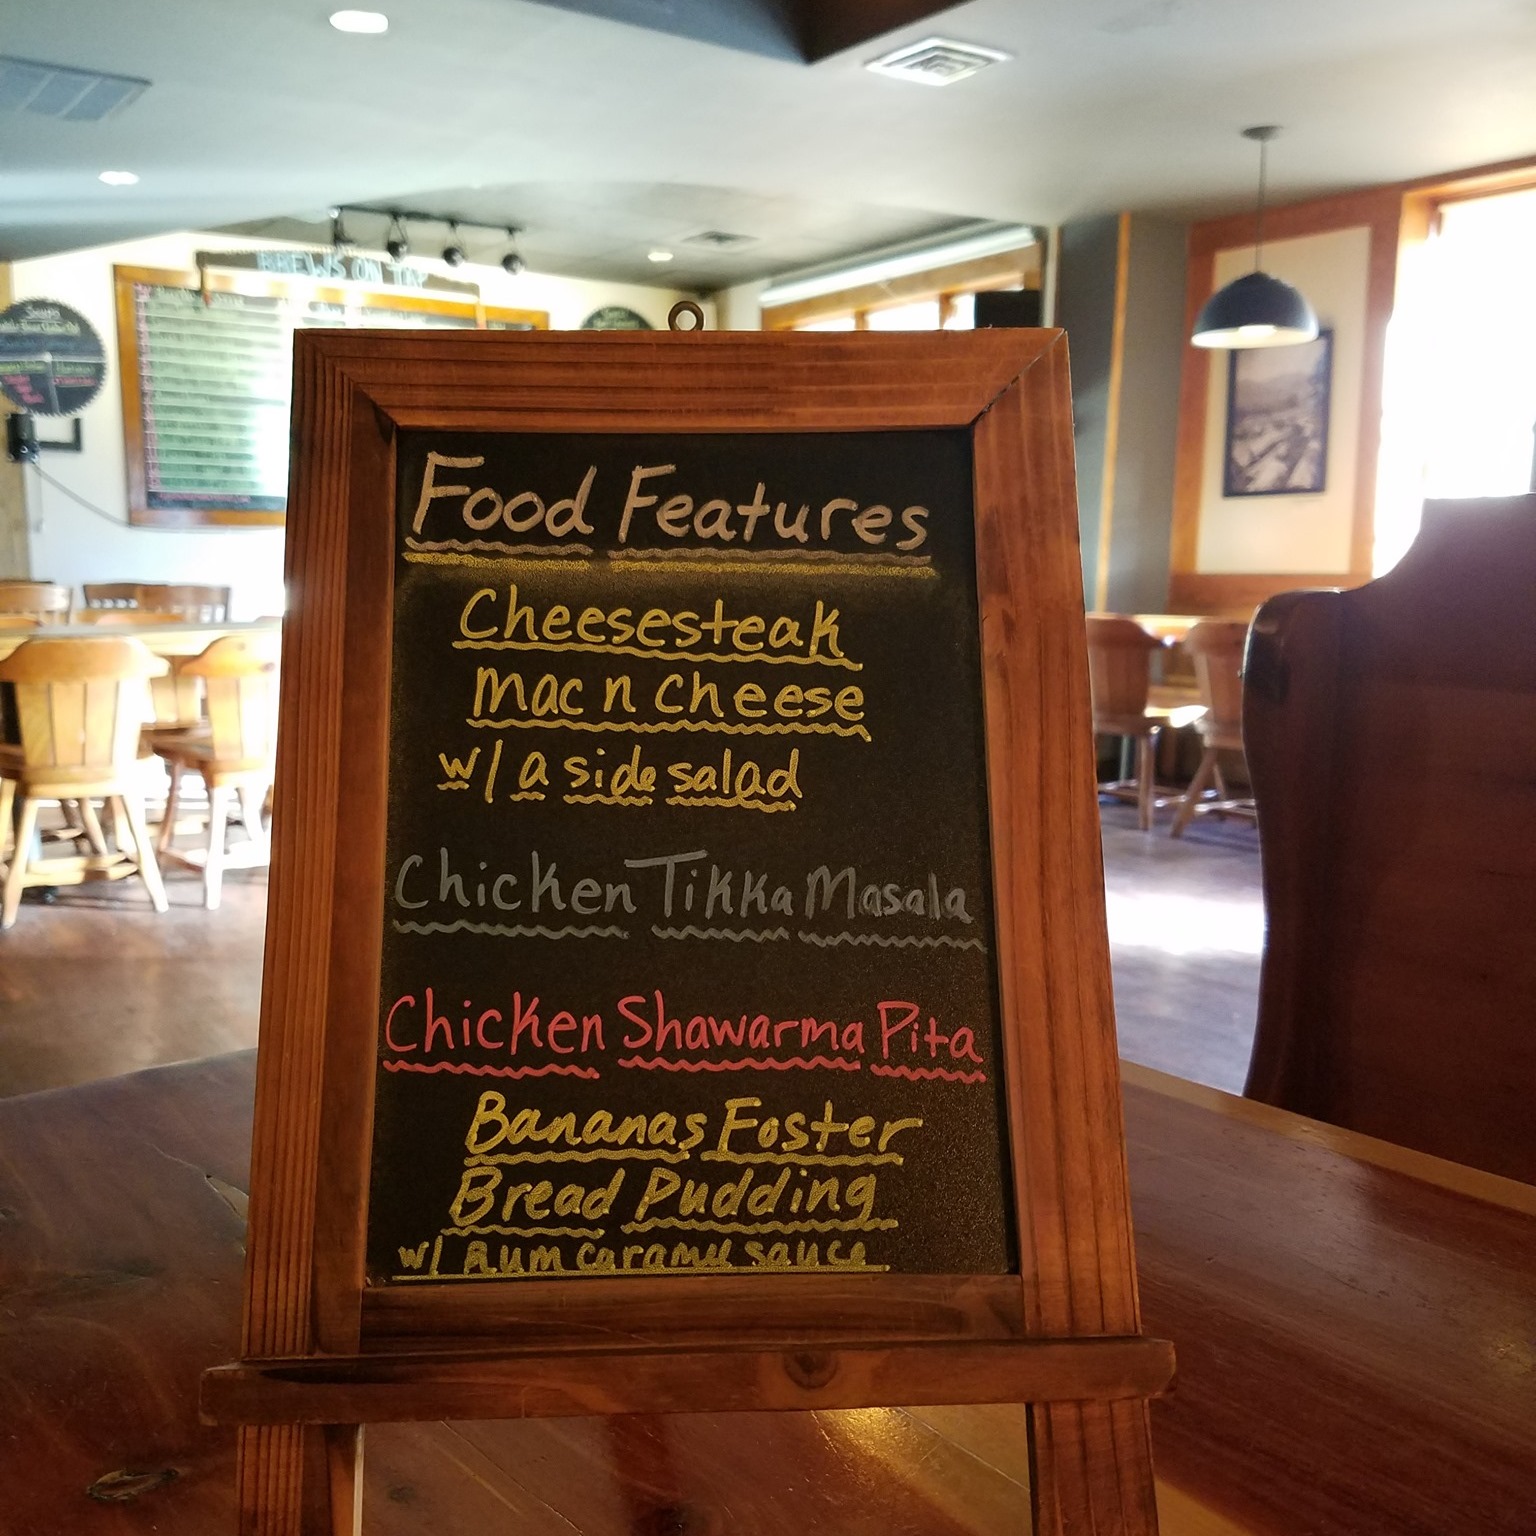 BREWS ON TAP
Food Features
Cheesesteak
mac n cheese
w/ a side salad
Chicken Tikka Masala
Chicken Shawarma Pita
Bananas Foster
Bread Pudding
w/ Rum caramel sauce